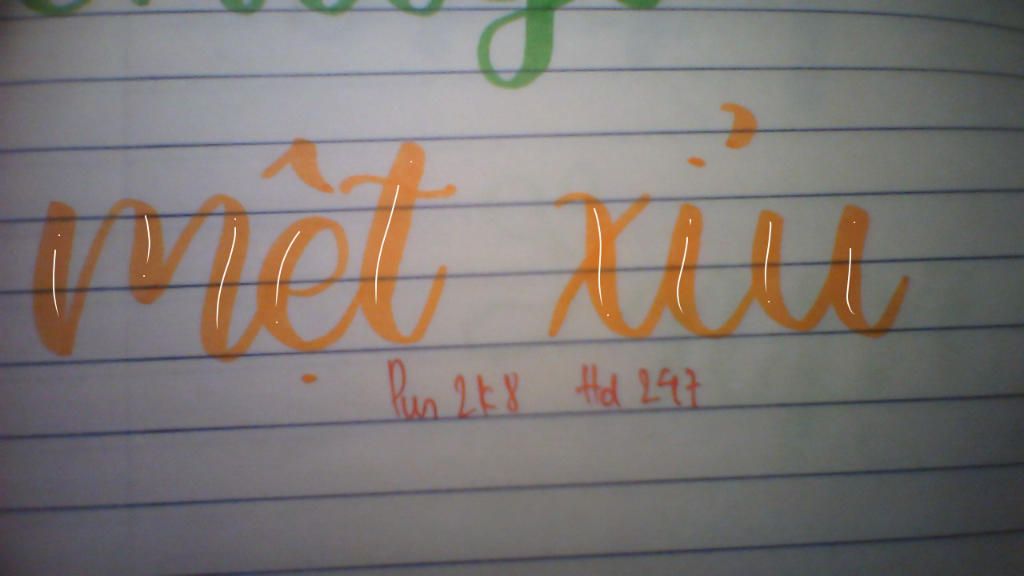 mệt xỉu
Pun 2k8 Hd 247